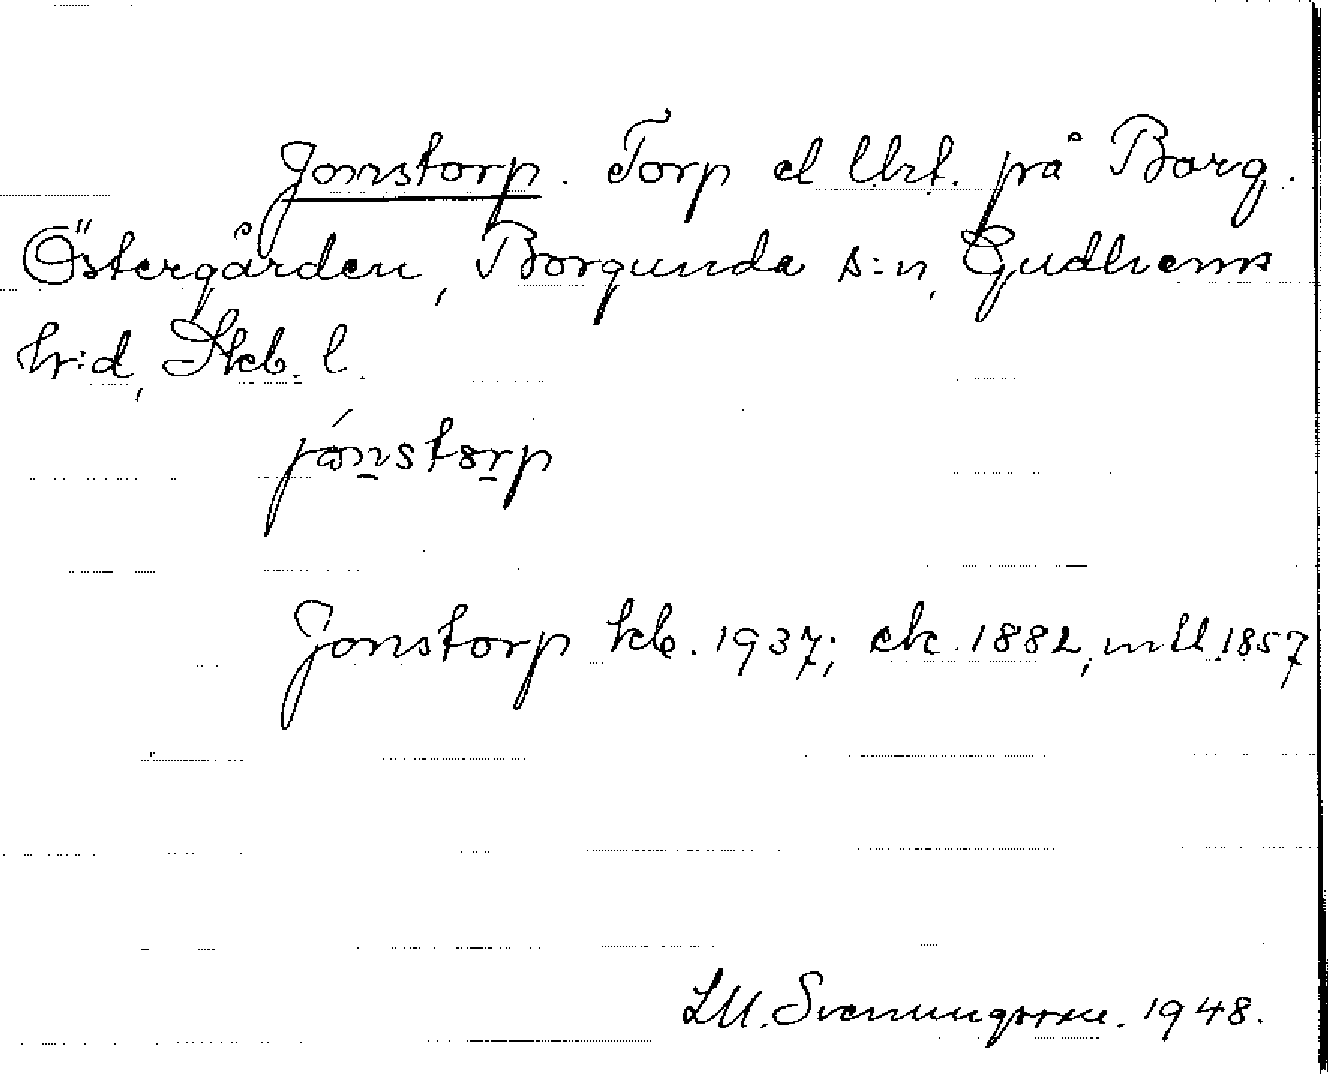 Jonstorp. Torp el lht. på Borg.
Östergården, Borgunda s:n, Gudhems
hr:d, Skb. l.
jónstorp
Jonstorp kb. 1937; ek. 1882, mtl. 1857
Svenungsson. 1948.